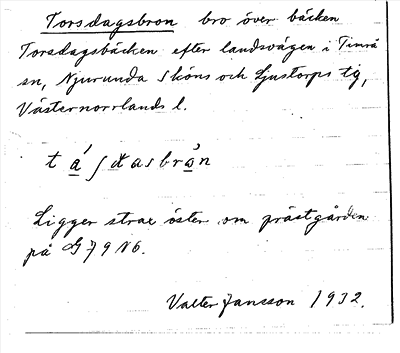 Torsdagsbron bro över bäcken
Torsdagsbäcken efter landsvägen i Timrå
sn, Njurunda Sköns och Ljustorps tg,
Västernorrlands l.
Ligger strax öster om prästgården
på G 7 9 N6.
Valter Jansson 1932.